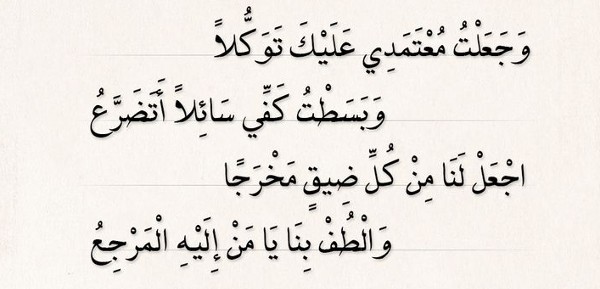 وَجَعَلْتُ مُعْتَمَدِي عَلَيْكَ تَوَكُّلاً
وَبَسَطْتُ كَفِّي سَائِلاً أَتَضَرَّعُ
اجْعَلْ لَنَا مِنْ كُلِّ ضِيقٍ مَخْرَجًا
وَالْطُفْ بِنَا يَا مَنْ إِلَيْهِ الْمَرْجِعُ